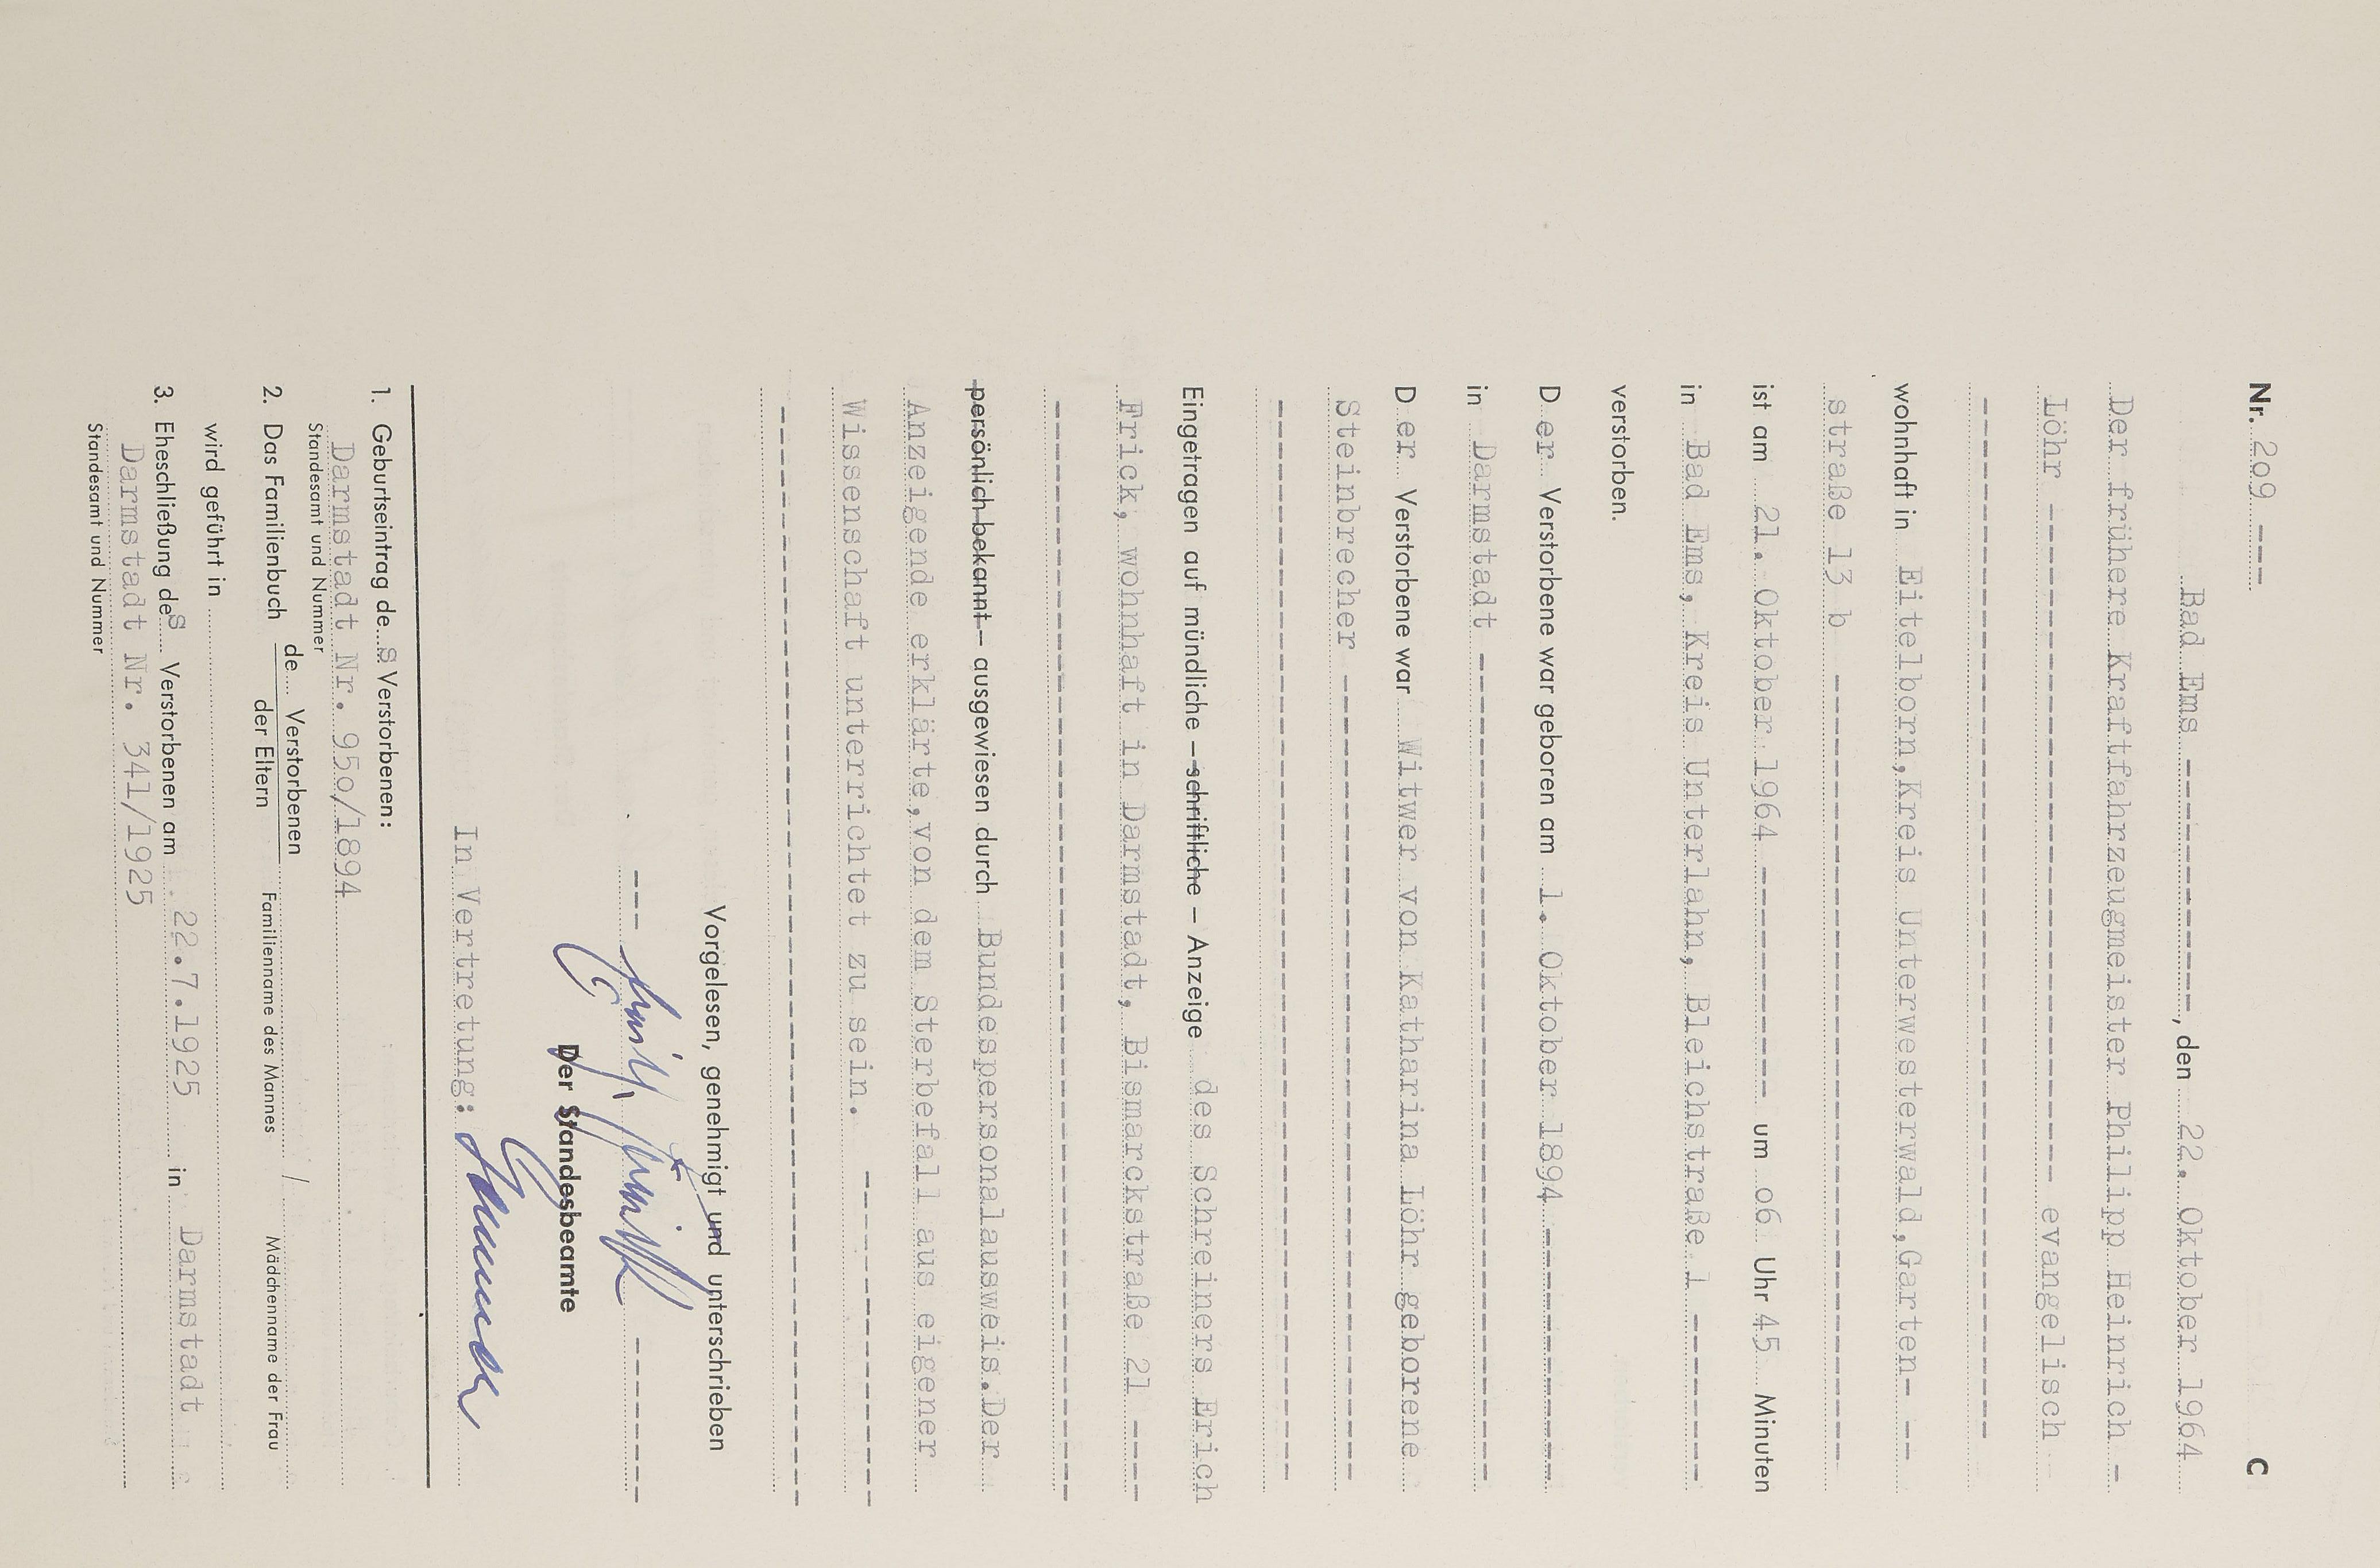 Nr. 2o9 --- C
Bad Ems ---------------, den 22. Oktober 1964
Der frühere Kraftfahrzeugmeister Philipp Heinrich -
Löhr ---------------------------------- evangelisch
-----------------------------------------------------
wohnhaft in Eitelborn,Kreis Unterwesterwald,Garten- --
straße 13 b -----------------------------------------
ist am 21. Oktober 1964 ------------ um o6 Uhr 45 Minuten
in Bad Ems, Kreis Unterlahn, Bleichstraße 1 ---------
verstorben.
D er Verstorbene war geboren am 1. Oktober 1894 -------------
in Darmstadt -------------------------------------------
D er Verstorbene war Witwer von Katharina Löhr geborene
Steinbrecher ------------------------------------------
-------------------------------------------------------
Eingetragen auf mündliche – schriftliche – Anzeige des Schreiners Erich
Frick, wohnhaft in Darmstadt, Bismarckstraße 21 ----
-------------------------------------------------------
persönlich bekannt – ausgewiesen durch Bundespersonalausweis.Der
Anzeigende erklärte,von dem Sterbefall aus eigener
Wissenschaft unterrichtet zu sein. -----------------
-------------------------------------------------------
Vorgelesen, genehmigt und unterschrieben
--- ---------
Der Standesbeamte
In Vertretung:
1. Geburtseintrag de s Verstorbenen:
Darmstadt Nr. 95o/1894
Standesamt und Nummer
2. Das Familienbuch de Verstorbenen / der Eltern
Familienname des Mannes Mädchenname der Frau
wird geführt in
3. Eheschließung des Verstorbenen am 22.7.1925 in Darmstadt
Darmstadt Nr. 341/1925
Standesamt und Nummer